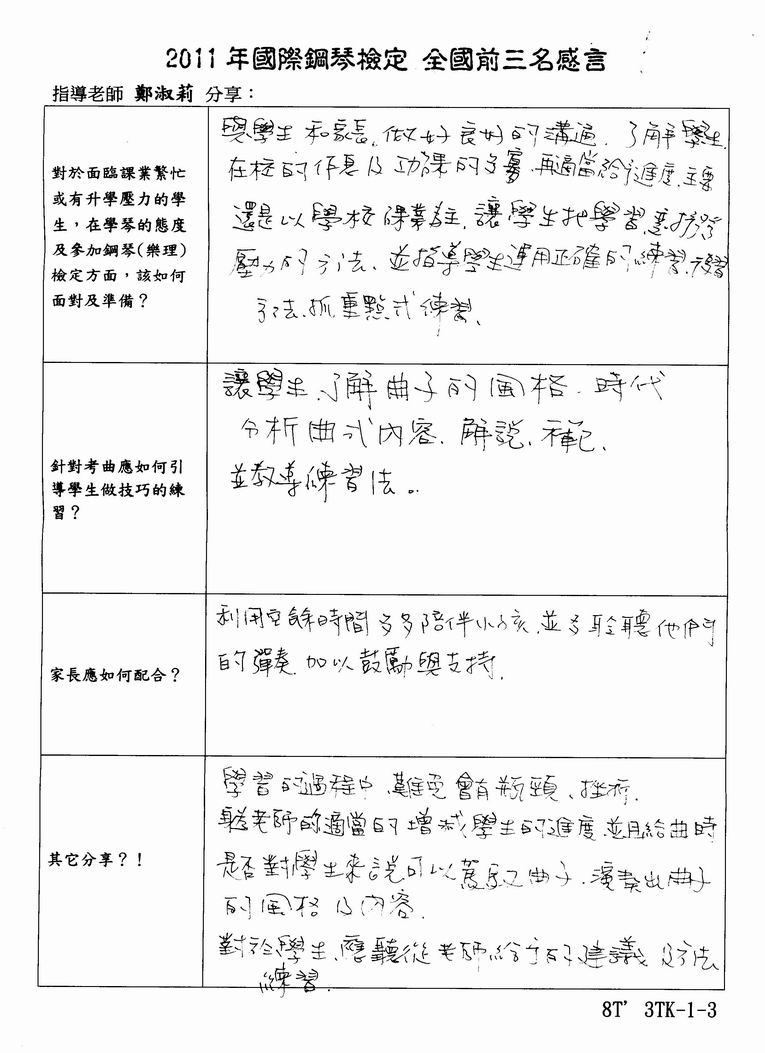 2011年國際鋼琴檢定 全國前三名感言
指導老師 鄭淑莉 分享：
對於面臨課業繁忙
或有升學壓力的學
生，在學琴的態度
及參加鋼琴(樂理)
檢定方面，該如何
面對及準備？
與學生和家長、做好良好的溝通、了解學生
在校的作息及功課的多寡、再適當給進度、主要
還是以學校課業為主、讓學生把學習
壓力的方法、並指導學生運用正確的練習、複習
方法、抓重點式練習、
針對考曲應如何引
導學生做技巧的練
習？
讓學生、了解曲子的風格、時代
分析曲式內容、解說、示範、
並教導練習法。
家長應如何配合？
利用空餘時間多多陪伴小孩、並多聆聽他們
的彈奏、加以鼓勵與支持、
其它分享？！
學習的過程中、難免會有瓶頸、挫折、
老師的適當的增減、學生的進度、並且給曲時
是否對學生來說可以駕馭曲子、演奏出曲子
的風格及內容、
對於學生、應聽從老師給予的建議及方法
練習、
8T' 3TK-1-3